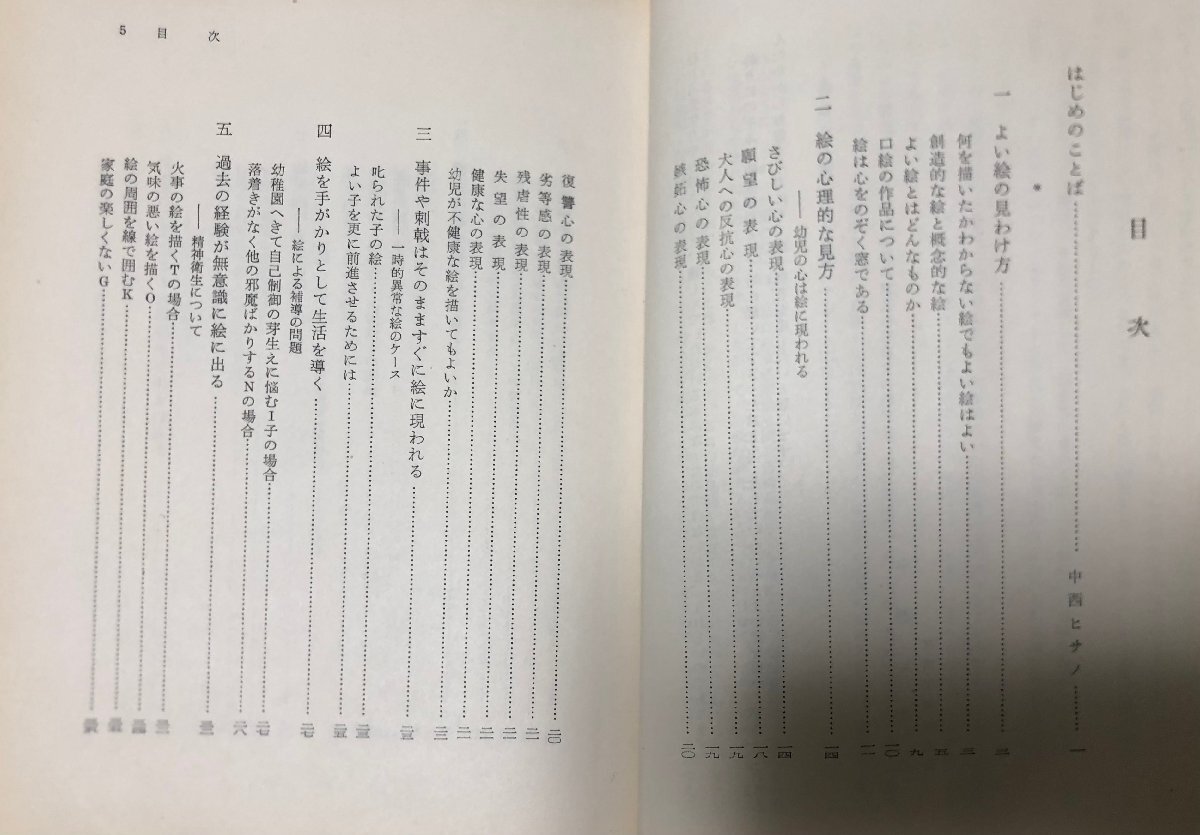 目次
はじめのことば……………………中西ヒサノ……一
＊
一 よい絵の見わけ方……………………三
何を描いたかわからない絵でもよい絵はよい……………………三
創造的な絵と概念的な絵……………………五
よい絵とはどんなものか……………………九
口絵の作品について……………………一〇
絵は心をのぞく窓である……………………一一
二 絵の心理的な見方……………………一四
――幼児の心は絵に現われる
さびしい心の表現……………………一四
願望の表現……………………一八
大人への反抗心の表現……………………一九
恐怖心の表現……………………一九
嫉妬心の表現……………………二〇
5 目次
復讐心の表現……………………二〇
劣等感の表現……………………二一
残虐性の表現……………………二一
失望の表現……………………二二
健康な心の表現……………………二二
幼児が不健康な絵を描いてもよいか……………………二三
三 事件や刺戟はそのまますぐに絵に現われる……………………二三
――一時的異常な絵のケース
叱られた子の絵……………………二三
よい子を更に前進させるためには……………………二五
四 絵を手がかりとして生活を導く……………………二七
――絵による補導の問題
幼稚園へきて自己制御の芽生えに悩むI子の場合……………………二七
落着きがなく他の邪魔ばかりするNの場合……………………二八
五 過去の経験が無意識に絵に出る……………………
――精神衛生について
火事の絵を描くTの場合……………………
気味の悪い絵を描くO……………………
絵の周囲を線で囲むK……………………
家庭の楽しくないG……………………